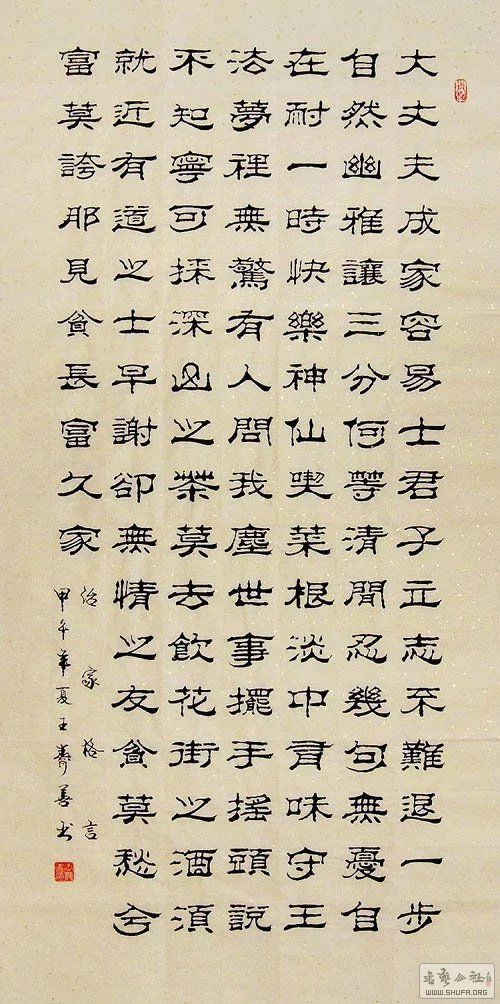 大丈夫成家容易士君子立志不難退一步
自然幽雅讓三分何等清閒忍幾句無憂自
在耐一時快樂神仙喫菜根淡中有味守王
法夢裡無驚有人問我塵世事擺手搖頭說
不知寧可採深山之茶莫去飲花街之酒須
就近有道之士早謝卻無情之友貧莫愁兮
富莫誇那見貧長富久家
治家格言
甲午年夏王壽善书
書藝公社
WWW.SHUFA.ORG